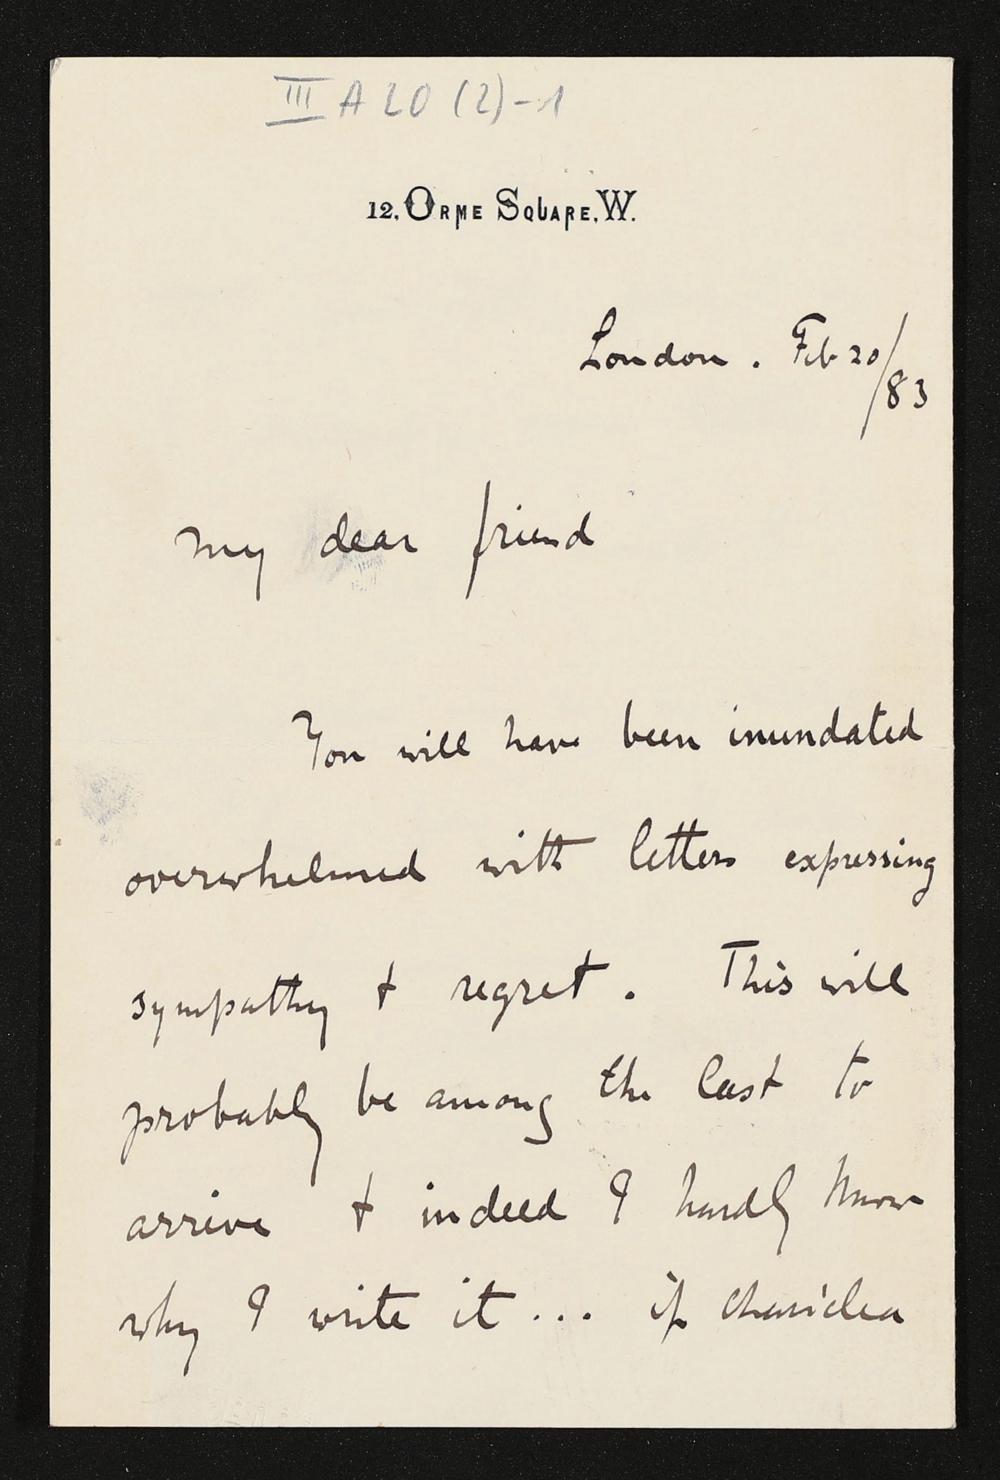 III A 20 (2)-1
12, ORME SQUARE, W.
London. Feb 20/83
My dear friend
You will have been inundated
overwhelmed with letters expressing
sympathy & regret. This will
probably be among the last to
arrive & indeed I hardly know
why I write it... if Chariclea